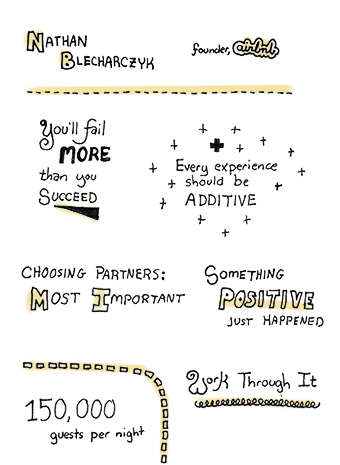 NATHAN
BLECHARCZYK
founder, airbnb
You'll fail
MORE
than you
SUCCEED
Every experience
should be
ADDITIVE
CHOOSING PARTNERS:
MOST IMPORTANT
SOMETHING
POSITIVE
JUST HAPPENED
150,000
guests per night
Work Through It